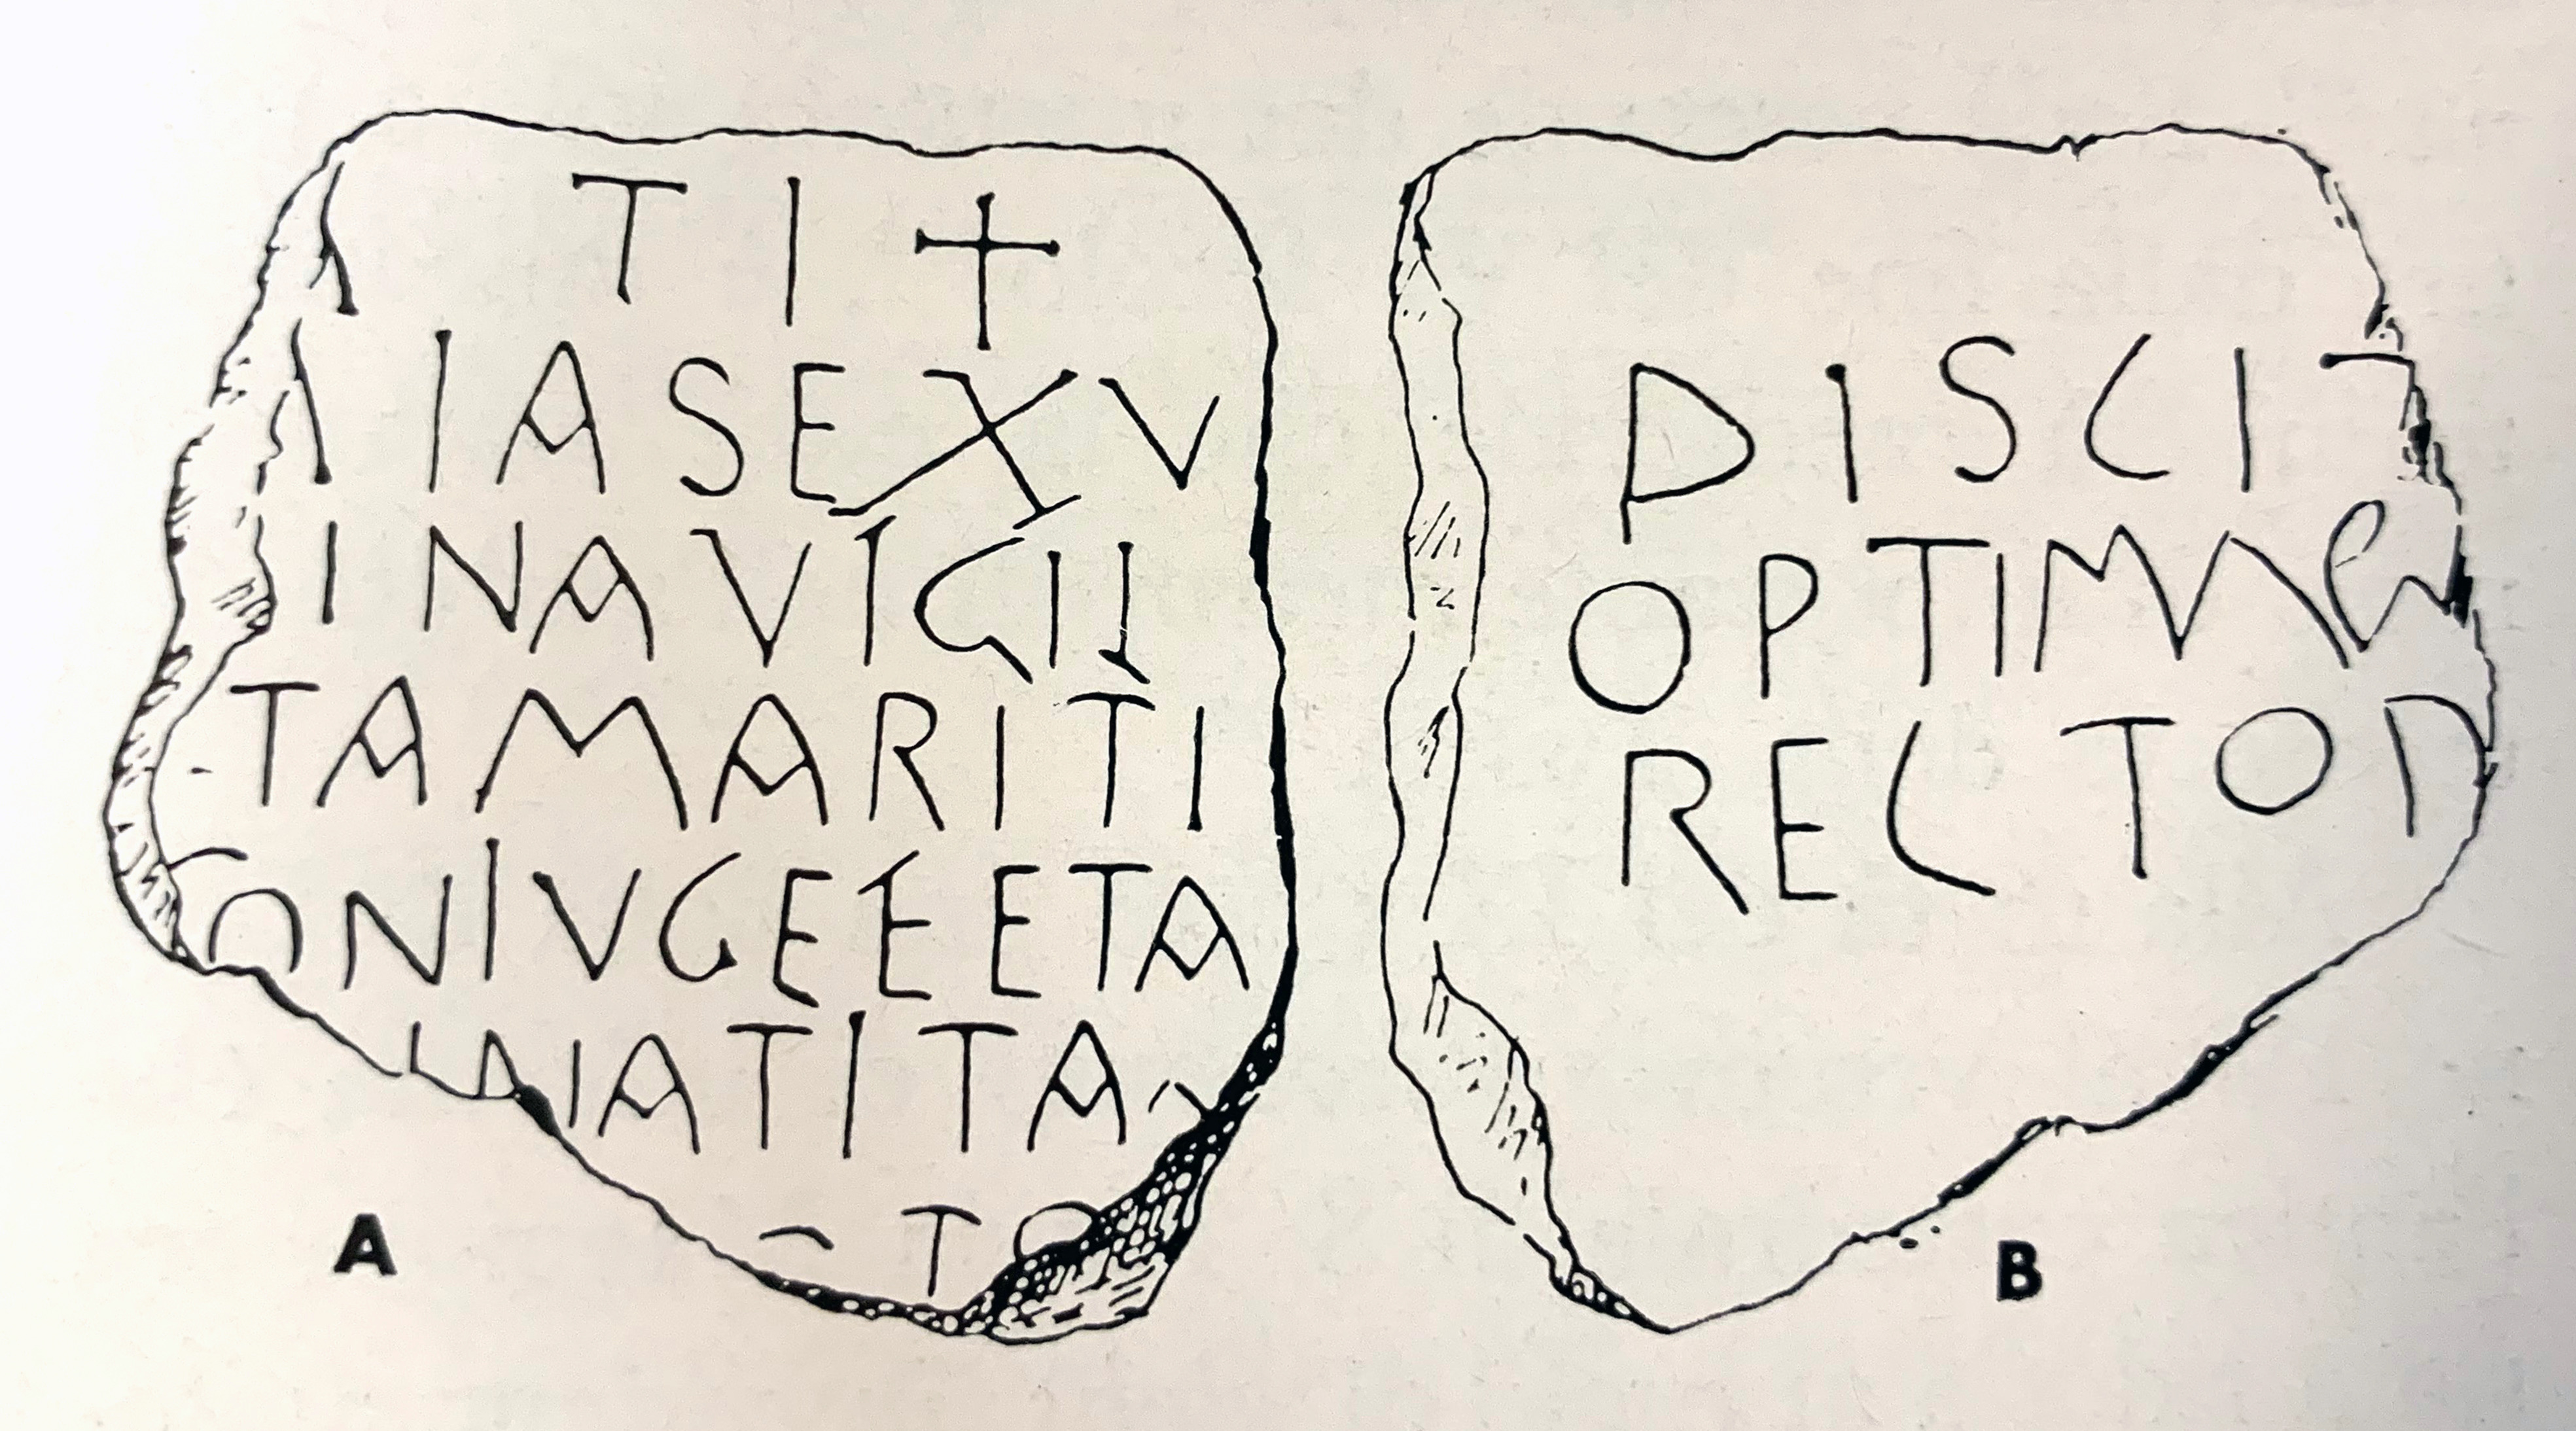 TI +
IASEXV
INAVIGII
TAMARITI
ONIVGEEETA
NATITA
TO
A
DISCIT
OPTIMA
RECTOR
B